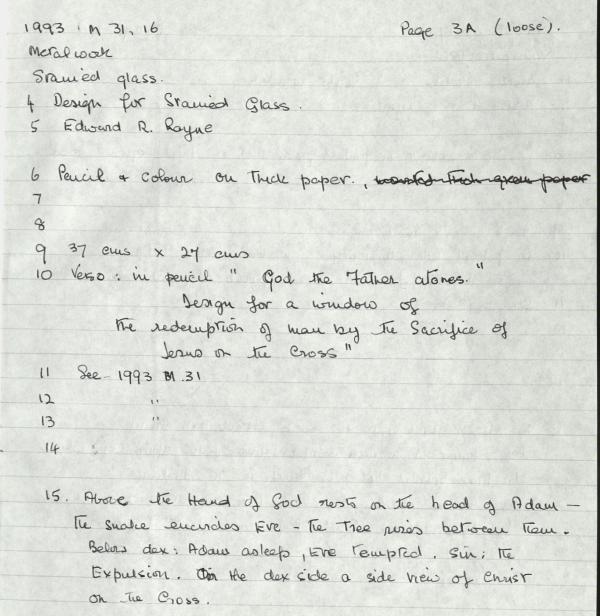 1993 M 31, 16 Page 3A (loose).
Metalwork
Stained glass.
4 Design for Stained Glass.
5 Edward R. Payne
6 Pencil & colour on thick paper., mounted thick green paper
7
8
9 37 cms x 27 cms
10 Verso : in pencil " God the Father atones."
Design for a window of
the redemption of man by the Sacrifice of
Jesus on the Cross"
11 See 1993 M.31
12 "
13 "
14
15. Above the Hand of God rests on the head of Adam -
The snake encircles Eve - The Tree rises between them.
Below dex: Adam asleep, Eve Tempted. Sin; the
Expulsion. On the dex side a side view of Christ
on the Cross.